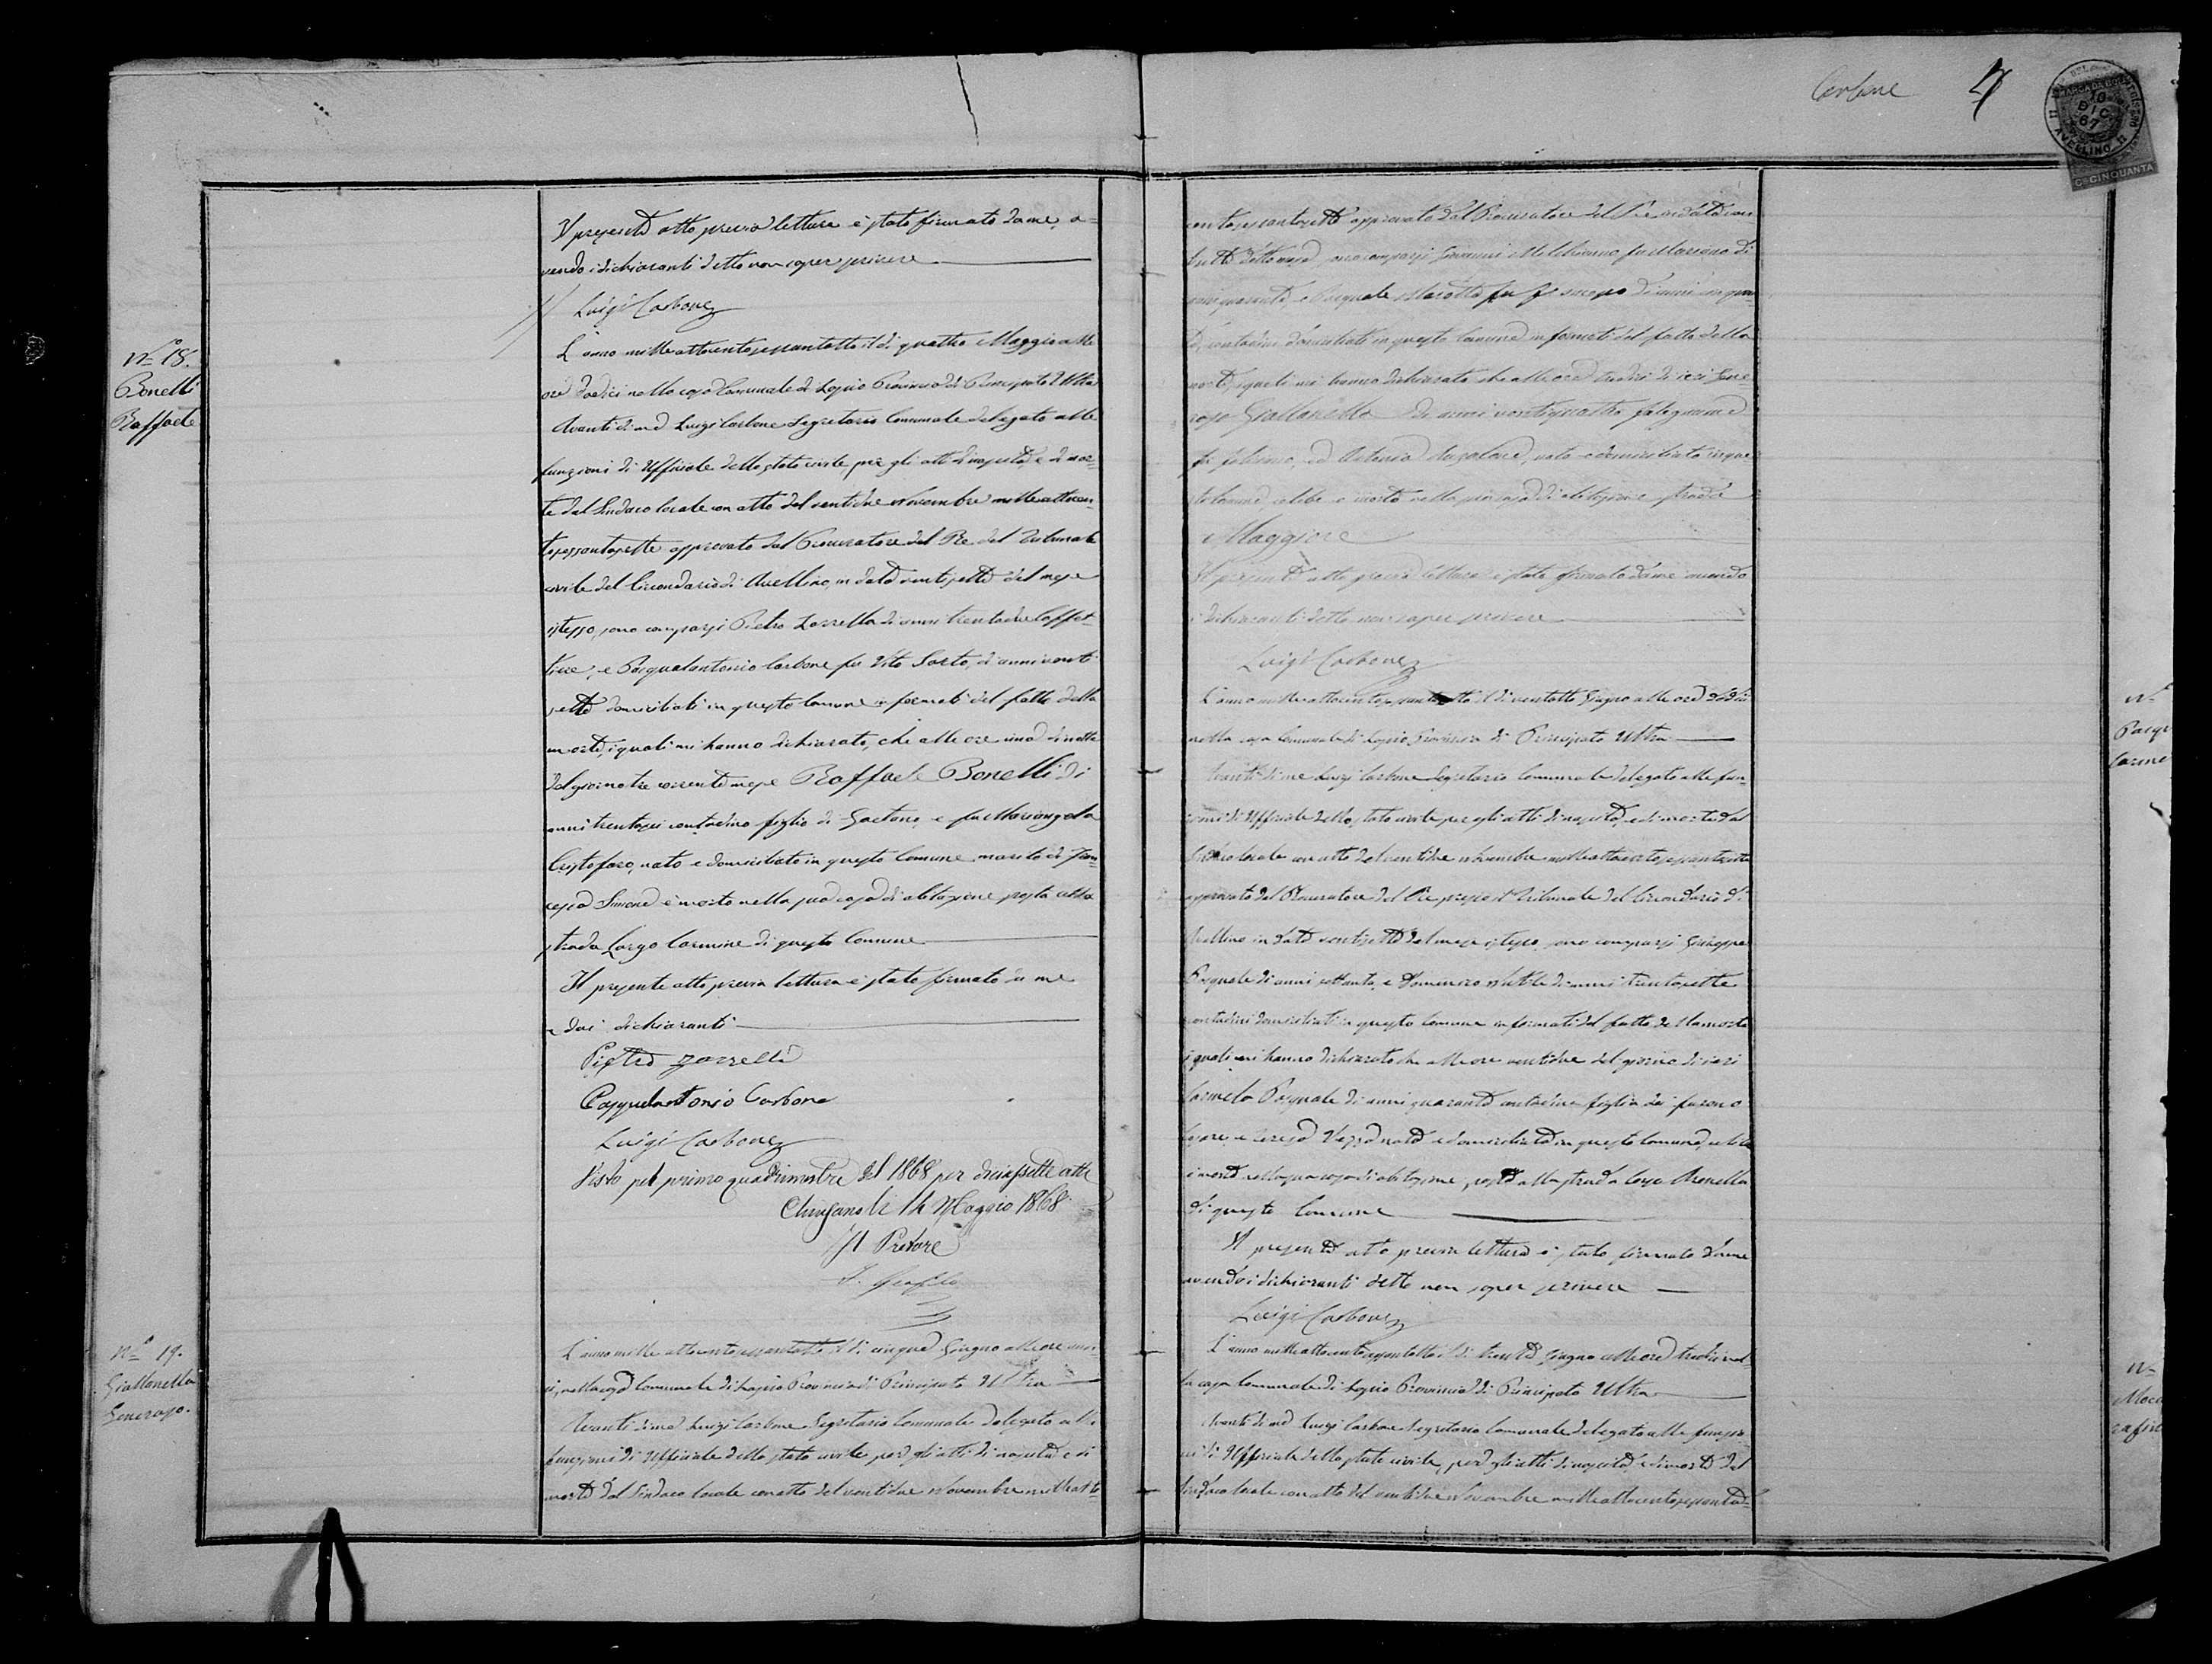 Il presente atto previa lettura è stato firmato da me, a-
vendo i dichiaranti detto non saper scrivere
Luigi Carbone
Nº 18.
Bonelli
Raffaele
L'anno milleottocentosessantotto il dì quattro Maggio alle
ore dodici nella casa Comunale di Lapio Provincia di Principato Ultra
Avanti di me Luigi Carbone Segretario Comunale delegato alle
funzioni di Uffiziale dello stato civile, per gli atti di nascita e di mor-
te dal Sindaco locale con atto del ventidue Novembre milleottocen-
tosessantasette approvato dal Procuratore del Re del Tribunale
civile del Circondario di Avellino, in data ventisette del mese
istesso, sono comparsi Pietro Zarrella di anni trentadue Caffet-
tiere, e Pasqualantonio Carbone fu Vito Sarto, di anni venti
sette domiciliati in questo Comune informati del fatto della
morte, i quali mi hanno dichiarato, che alle ore una di notte
del giorno tre corrente mese Raffaele Bonelli di
anni trentasei contadino figlio di Gaetano, e fu Mariangela
Cristofaro, nato e domiciliato in questo Comune marito di Fran-
cesca Simone è morto nella sua casa di abitazione posta alla
strada Largo Carmine di questo Comune
Il presente atto previa lettura è stato firmato da me
e dai dichiaranti
Pietro Zarrella
Pasqualantonio Carbone
Luigi Carbone
Visto pel primo quadrimestre del 1868 per diciassette atti
Chiusano li 14 Maggio 1868
Il Pretore
Nº 19.
Giallonella
Generoso.
L'anno milleottocentosessantotto il dì cinque Giugno alle ore
nella casa Comunale di Lapio Provincia di Principato Ultra
Avanti di me Luigi Carbone Segretario Comunale delegato alle
funzioni di Uffiziale dello stato civile per gli atti di nascita e di
morte dal Sindaco locale con atto del ventidue Novembre milleotto-
Carbone 4
16
DIC
67
AVELLINO
Cs CINQUANTA
centosessantasette approvato dal Procuratore del Re in data ven-
tisette detto mese sono comparsi Giovanni fu di
anni quaranta e Pasquale fu di anni
contadini domiciliati in questo Comune informati del fatto della
morte, i quali mi hanno dichiarato che alle ore tredici di ieri Gene-
roso Giallonella di anni ventiquattro falegname
fu ed nato e domiciliato in que-
sto Comune celibe è morto nella sua casa di abitazione strada
Maggiore
Il presente atto previa lettura è stato firmato da me avendo
i dichiaranti detto non saper scrivere
Luigi Carbone
Nº
Pasqu
Carme
L'anno milleottocentosessantotto il dì ventotto Giugno alle ore dodici
nella casa Comunale di Lapio Provincia di Principato Ultra
Avanti di me Luigi Carbone Segretario Comunale delegato alle fun-
zioni di Uffiziale dello stato civile per gli atti di nascita, e di morte dal
Sindaco locale con atto del ventidue Novembre milleottocentosessantasette
approvato dal Procuratore del Re presso il Tribunale del Circondario di
Avellino in data ventisette del mese istesso, sono comparsi Giuseppe
Pasquale di anni settanta, e Domenico di anni trentasette
contadini domiciliati in questo Comune informati del fatto della morte
i quali mi hanno dichiarato che alle ore ventidue del giorno di ieri
Carmela Pasquale di anni quaranta contadina figlia dei furono
e Teresa nata e domiciliata in questo Comune, nubile
è morta nella sua casa di abitazione, posta alla strada Largo
di questo Comune
Il presente atto previa lettura è stato firmato da me
avendo i dichiaranti detto non saper scrivere
Luigi Carbone
Nº
L'anno milleottocentosessantotto il dì trenta Giugno alle ore tredici nel-
la casa Comunale di Lapio Provincia di Principato Ultra
Avanti di me Luigi Carbone Segretario Comunale delegato alle funzio-
ni di Uffiziale dello stato civile, per gli atti di nascita, e di morte dal
Sindaco locale con atto del ventidue Novembre milleottocentosessanta-